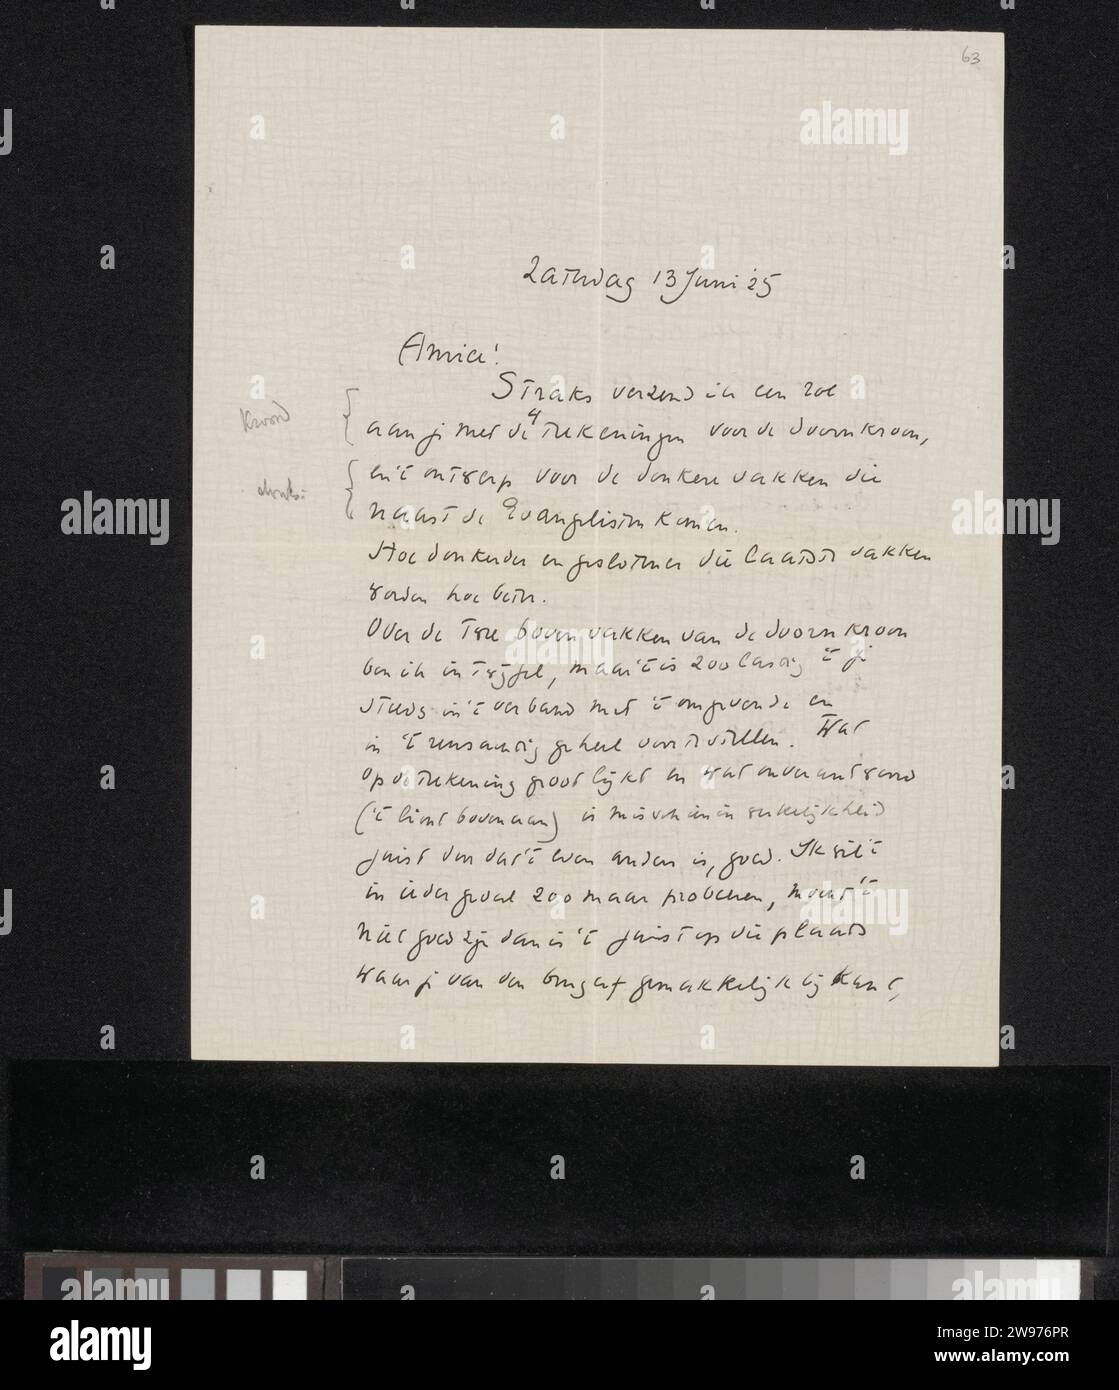 63
Zaterdag 13 Juni '25
Amice!
Straks verzend ik een rol
aan je met de 4 teekeningen voor de doornkroon,
en 't ontwerp voor de donkere vakken die
naast de Evangelisten komen.
Hoe donkerder en geslotener die laatste vakken
worden hoe beter.
Over de twee boven vakken van de doornkroon
ben ik in twijfel, maar 't is zoo lastig 't je
steeds in 't verband met 't omgevende en
in 't reusachtig geheel voor te stellen. Wat
op de teekening groot lijkt en wat onverantwoord
('t licht bovenaan) is misschien in werkelijkheid
juist door dat 't even anders is, goed. Ik wil 't
in ieder geval zoo maar probeeren, mocht 't
niet goed zijn dan is 't juist op die plaats
waar je van den brug af gemakkelijk bij kunt,
Kroon
alamy
a
Image ID: 2W976PR
www.alamy.com